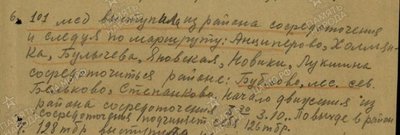 6. 101 мсд выступила из района сосредоточения
и следуя по маршруту: Анциперово, Холмян-
ка, Булычева, Яновская, Новики, Лукшина
сосредоточиться районе: Бублово, лес. сев.
Бельково, Степанкова. Начало движения из
района сосредоточения 3.10. По выходе в район
сосредоточения подчиняет себе 126 тбр.
128 тбр выступила